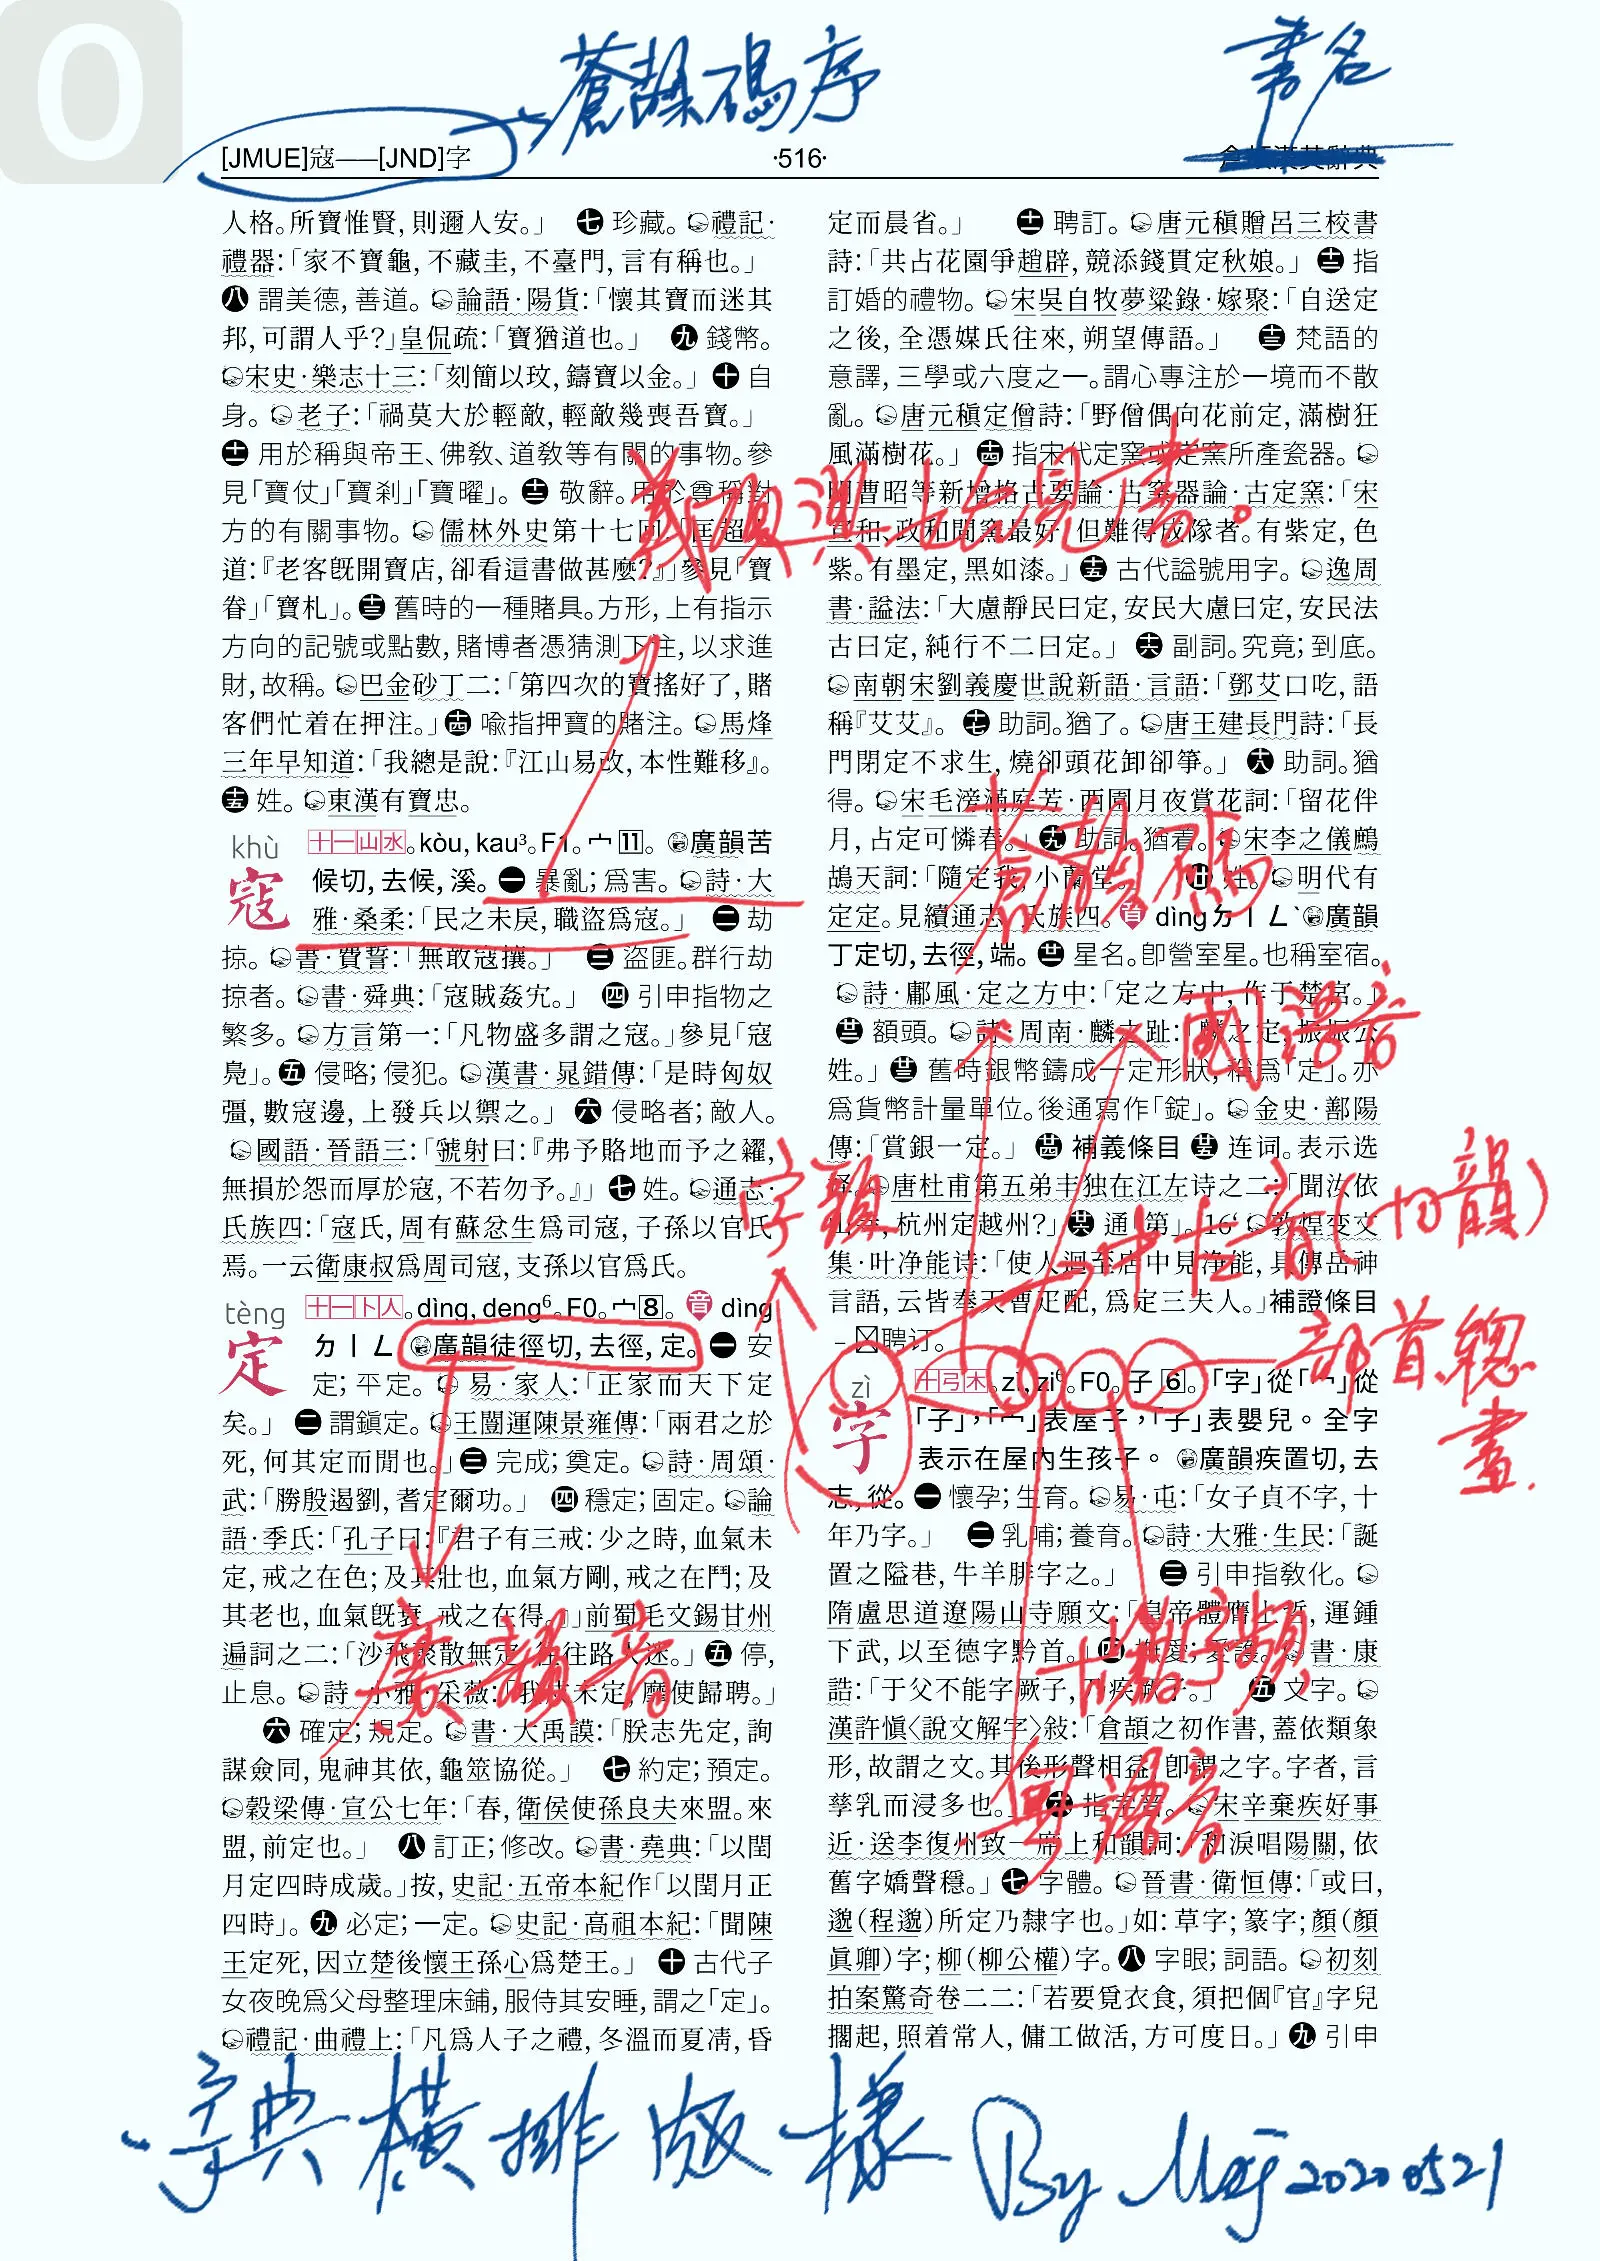 0
蒼頡碼序
書名
[JMUE]寇——[JND]字
·516·
人格。所寶惟賢，則邇人安。」 七 珍藏。禮記·
禮器：「家不寶龜，不藏圭，不臺門，言有稱也。」
八 謂美德，善道。論語·陽貨：「懷其寶而迷其
邦，可謂人乎?」皇侃疏：「寶猶道也。」 九 錢幣。
宋史·樂志十三：「刻簡以玫，鑄寶以金。」 十 自
身。老子：「禍莫大於輕敵，輕敵幾喪吾寶。」
十一 用於稱與帝王、佛教、道教等有關的事物。參
見「寶仗」「寶剎」「寶曜」。 十二 敬辭。用於尊稱對
方的有關事物。儒林外史第十七回：「匡超
道：『老客既開寶店，卻看這書做甚麼?』」參見「寶
眷」「寶札」。 十三 舊時的一種賭具。方形，上有指示
方向的記號或點數，賭博者憑猜測下注，以求進
財，故稱。巴金砂丁二：「第四次的寶搖好了，賭
客們忙着在押注。」 十四 喻指押寶的賭注。馬烽
三年早知道：「我總是說：『江山易改，本性難移』。
十五 姓。東漢有寶忠。
khù 十一山水。kòu, kau³。F1。宀 11。廣韻苦
寇 候切，去候，溪。 一 暴亂；爲害。詩·大
雅·桑柔：「民之未戾，職盜爲寇。」 二 劫
掠。書·費誓：「無敢寇攘。」 三 盜匪。群行劫
掠者。書·舜典：「寇賊姦宄。」 四 引申指物之
繁多。方言第一：「凡物盛多謂之寇。」參見「寇
鳧」。 五 侵略；侵犯。漢書·晁錯傳：「是時匈奴
彊，數寇邊，上發兵以禦之。」 六 侵略者；敵人。
國語·晉語三：「虢射曰：『弗予賂地而予之糴，
無損於怨而厚於寇，不若勿予。』」 七 姓。通志·
氏族四：「寇氏，周有蘇忿生爲司寇，子孫以官氏
焉。一云衛康叔爲周司寇，支孫以官爲氏。
tèng 十一卜人。dìng, deng⁶。F0。宀 8。音 dìng
定 ㄉㄧㄥ 廣韻徒徑切，去徑，定。 一 安
定；平定。易·家人：「正家而天下定
矣。」 二 謂鎮定。王闓運陳景雍傳：「兩君之於
死，何其定而閒也。」 三 完成；奠定。詩·周頌·
武：「勝殷遏劉，耆定爾功。」 四 穩定；固定。論
語·季氏：「孔子曰：『君子有三戒：少之時，血氣未
定，戒之在色；及其壯也，血氣方剛，戒之在鬥；及
其老也，血氣既衰，戒之在得。』」前蜀毛文錫甘州
遍詞之二：「沙飛聚散無定，往往路人迷。」 五 停，
止息。詩·小雅·采薇：「我戍未定，靡使歸聘。」
六 確定；規定。書·大禹謨：「朕志先定，詢
謀僉同，鬼神其依，龜筮協從。」 七 約定；預定。
穀梁傳·宣公七年：「春，衛侯使孫良夫來盟。來
盟，前定也。」 八 訂正；修改。書·堯典：「以閏
月定四時成歲。」按，史記·五帝本紀作「以閏月正
四時」。 九 必定；一定。史記·高祖本紀：「聞陳
王定死，因立楚後懷王孫心爲楚王。」 十 古代子
女夜晚爲父母整理床鋪，服侍其安睡，謂之「定」。
禮記·曲禮上：「凡爲人子之禮，冬溫而夏凊，昏
定而晨省。」 十一 聘訂。唐元稹贈呂三校書
詩：「共占花園爭趙辟，競添錢貫定秋娘。」 十二 指
訂婚的禮物。宋吳自牧夢粱錄·嫁聚：「自送定
之後，全憑媒氏往來，朔望傳語。」 十三 梵語的
意譯，三學或六度之一。謂心專注於一境而不散
亂。唐元稹定僧詩：「野僧偶向花前定，滿樹狂
風滿樹花。」 十四 指宋代定窯或定窯所產瓷器。
明曹昭等新增格古要論·古窯器論·古定窯：「宋
宣和、政和間窯最好，但難得成隊者。有紫定，色
紫。有墨定，黑如漆。」 十五 古代謚號用字。逸周
書·謚法：「大慮靜民曰定，安民大慮曰定，安民法
古曰定，純行不二曰定。」 十六 副詞。究竟；到底。
南朝宋劉義慶世說新語·言語：「鄧艾口吃，語
稱『艾艾』。 十七 助詞。猶了。唐王建長門詩：「長
門閉定不求生，燒卻頭花卸卻箏。」 十八 助詞。猶
得。宋毛滂滿庭芳·西園月夜賞花詞：「留花伴
月，占定可憐春。」 十九 助詞。猶着。宋李之儀鷓
鴣天詞：「隨定我，小蘭堂。」 廿 姓。明代有
定定。見續通志·氏族四。音 dìngㄉㄧㄥˋ廣韻
丁定切，去徑，端。 廿一 星名。即營室星。也稱室宿。
詩·鄘風·定之方中：「定之方中，作于楚宮。」
廿二 額頭。詩·周南·麟之趾：「麟之定，振振公
姓。」 廿三 舊時銀幣鑄成一定形狀，稱爲「定」。亦
爲貨幣計量單位。後通寫作「錠」。金史·鄱陽
傳：「賞銀一定。」 廿四 補義條目 廿五 连词。表示选
择。唐杜甫第五弟丰独在江左诗之二：「聞汝依
山寺，杭州定越州?」 廿六 通「第」。16‘敦煌变文
集·叶净能诗：「使人迴至店中見净能，具傳岳神
言語，云皆奉天曹疋配，爲定三夫人。」補證條目
– 聘订。
zì 十弓木。zì, zi⁶。F0。子 6。「字」從「宀」從
字 「子」，「宀」表屋子，「子」表嬰兒。全字
表示在屋內生孩子。廣韻疾置切，去
志，從。 一 懷孕；生育。易·屯：「女子貞不字，十
年乃字。」 二 乳哺；養育。詩·大雅·生民：「誕
置之隘巷，牛羊腓字之。」 三 引申指教化。
隋盧思道遼陽山寺願文：「皇帝體膺上哲，運鍾
下武，以至德字黔首。」 四 撫愛；愛護。書·康
誥：「于父不能字厥子，乃疾厥子。」 五 文字。
漢許慎〈說文解字〉敍：「倉頡之初作書，蓋依類象
形，故謂之文。其後形聲相益，即謂之字。字者，言
孳乳而浸多也。」 六 指字音。宋辛棄疾好事
近·送李復州致一席上和韻詞：「和淚唱陽關，依
舊字嬌聲穩。」 七 字體。晉書·衛恒傳：「或曰，
邈（程邈）所定乃隸字也。」如：草字；篆字；顏（顏
眞卿）字；柳（柳公權）字。 八 字眼；詞語。初刻
拍案驚奇卷二二：「若要覓衣食，須把個『官』字兒
擱起，照着常人，傭工做活，方可度日。」 九 引申
義項與上古見書。
蒼頡碼
國語音
字頭
中古音（切韻）
部首總畫
廣韻音
古籍字頻
粵語音
字典橫排版樣 By Maj 20200521